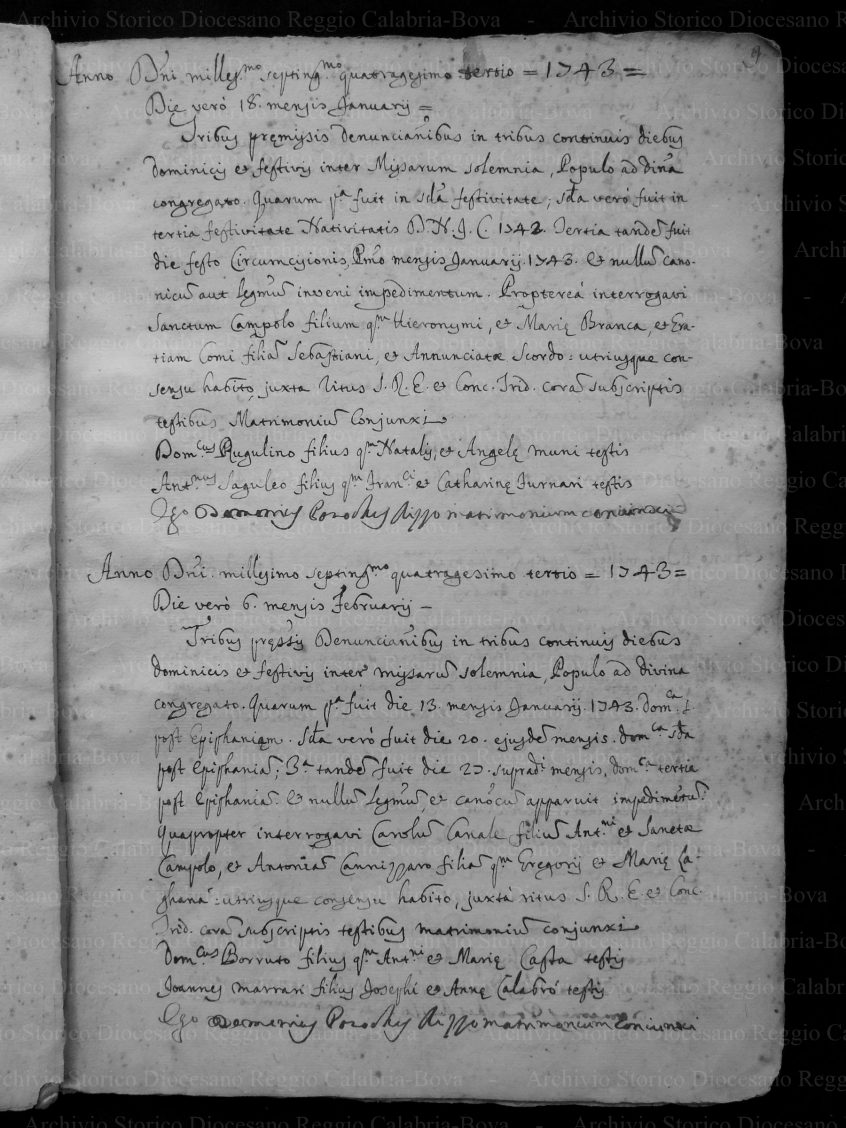 9
Anno Dni milles.mo septing.mo quatragesimo tertio = 1743 =
Die veró 18. mensis Januarij =
Tribus pręmissis Denuncianibus in tribus continuis diebus
Dominicis et festivis inter Missarum solemnia, Populo ad divina
congregato. Quarum pa fuit in sda festivitate; sda veró fuit in
tertia festivitate Nativitatis D.N.J.C. 1742. Tertia tandē fuit
die festo Circumcisionis, Pmo mensis Januarij. 1743. Et nullū cano-
nicū aut legmū inveni impedimentum. Proptereá interrogavi
Sanctum Campolo filium qm Hieronymi, et Marię Branca, et Gra-
tiam Comi filiā Sebastiani, et Annunciatæ Scordo: utriusque con-
sensu habito, juxta Ritus S. R. E. et Conc. Trid. corā subscriptis
testibus Matrimoniū Conjunxi
Dom.cus Rugulino filius qm Natalis, et Angelę Muni testis
Ant.nus Saguleo filius qm Fran.ci et Catharinę Furnari testis
Ego Rizzo matrimonium coniunxi
Anno Dni. millesimo septing.mo quatragesimo tertio = 1743 =
Die veró 6. mensis Februarij –
Tribus pręssis Denuncianibus in tribus continuis diebus
dominicis et festivis inter missarū solemnia, Populo ad divina
congregato. Quarum pa fuit die 13. mensis Januarij. 1743. Dom.ca
post Epiphaniam. Sda veró fuit die 20. ejusdē mensis. dom.ca sda
post Epiphaniā; 3.a tandē fuit die 27. supradi mensis, dom.ca tertia
post Epiphaniā. Et nullū legmū, et canocū apparuit impedimētū.
Quapropter interrogavi Carolū Canale filiū Ant.ni et Sanctæ
Campolo, et Antoniā Cannizzaro filiā qm Gregorij et Marię La-
ghanà: utriusque consensu habito, juxtà ritus S. R. E. et Conc.
Trid. corā subscriptis testibus matrimoniū conjunxi
Dom.cus Borruto filius qm Ant.ni et Marię Casta testis
Joannes marrari filius Josephi et Annę Calabró testis
Ego Rizzo matrimonium coniunxi
Archivio Storico Diocesano Reggio Calabria-Bova - Archivio Storico Diocesano Reggio Calabria-Bova